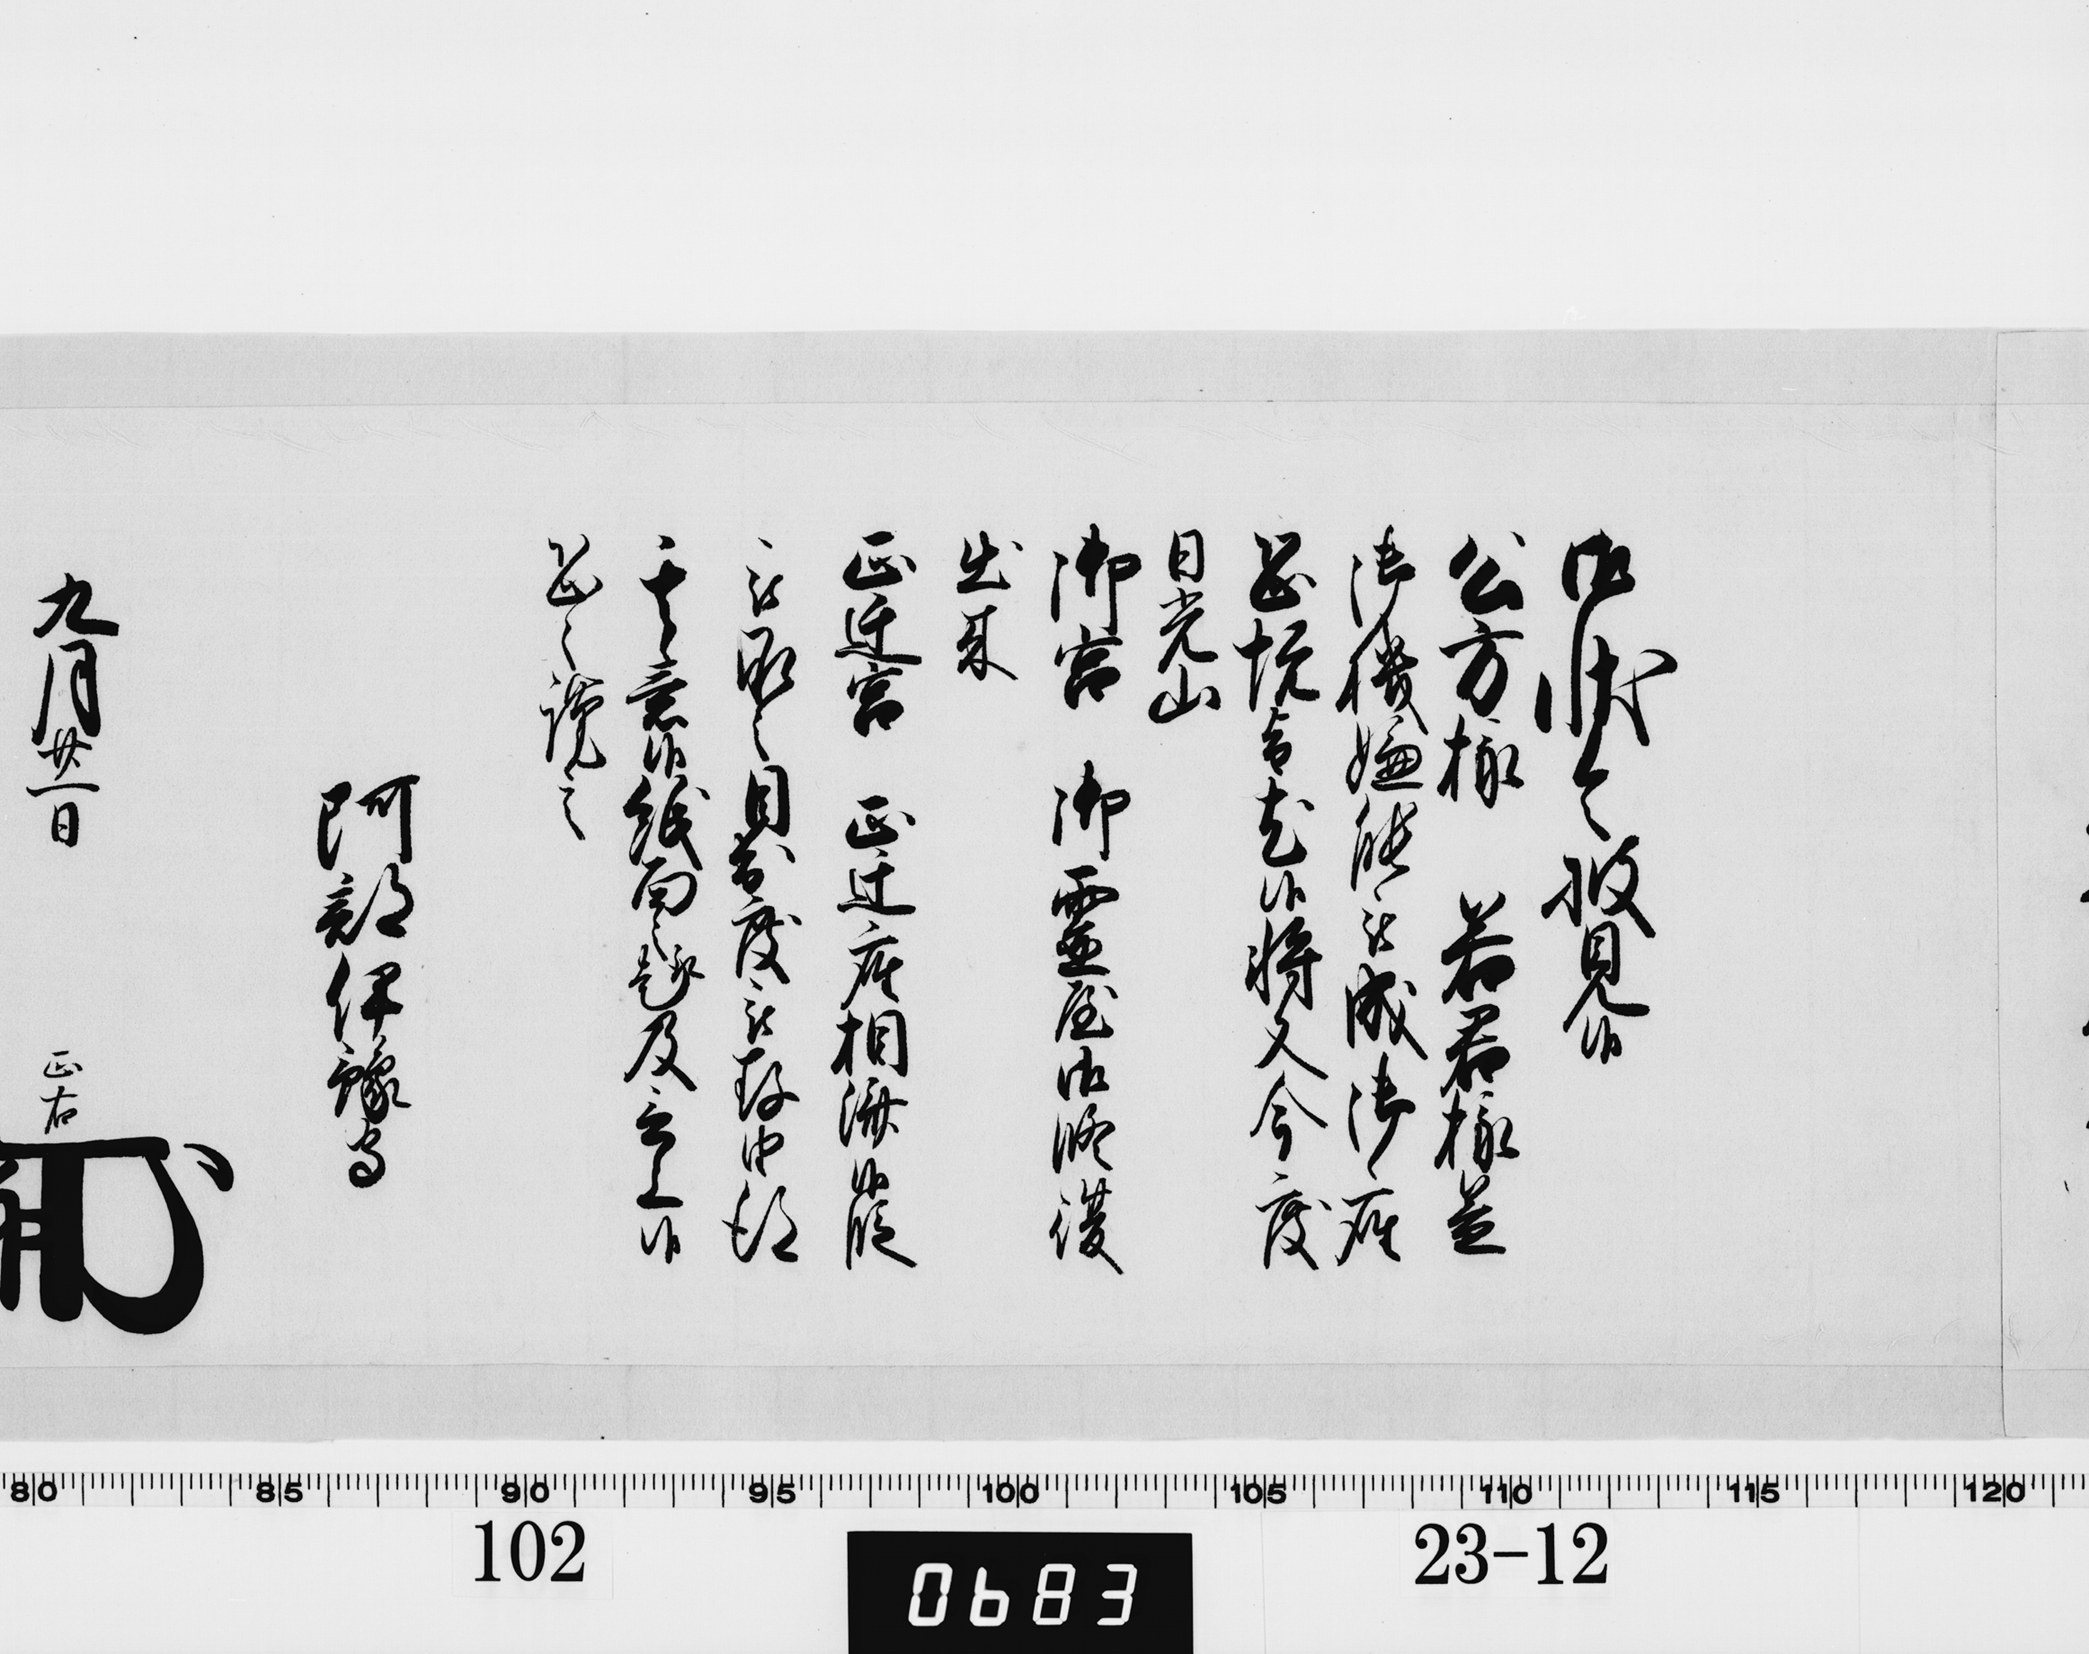 御状令披見候
公方様 若君様益
御機嫌能被成御座
恐悦旨尤候将又今度
日光山
御宮 御霊屋御修復
出来
正遷宮 正遷座相済候段
被承之目出度被存由得
其意候紙面之趣及言上候
恐々謹言
阿部伊豫守
九月廿一日
正右
80 85 90 95 100 105 110 115 120
102
0683
23-12